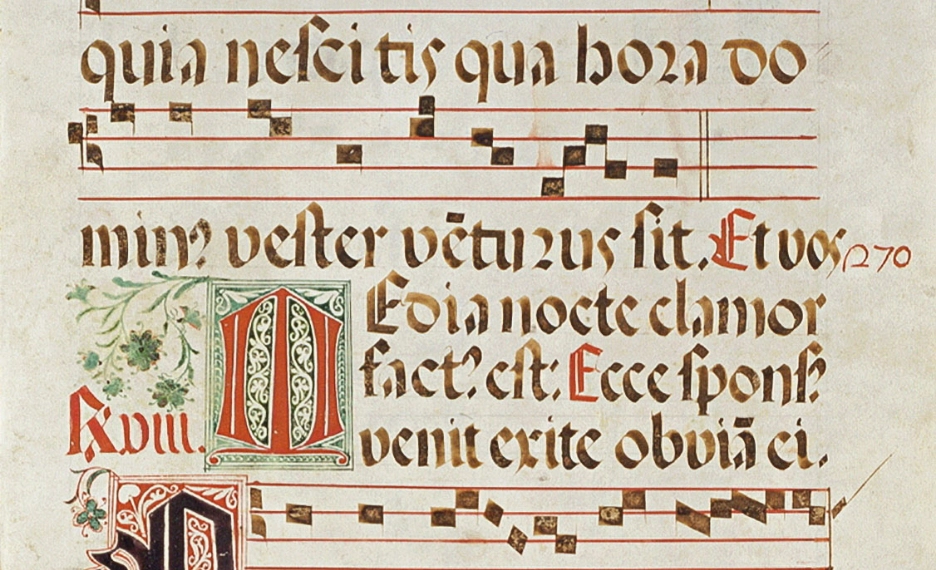 quia nescitis qua hora do
minꝰ vester vētururs sit. Et vos 270
MEdia nocte clamor
factꝰ est: Ecce sponsꝰ
R viii. venit exite obviā ei.